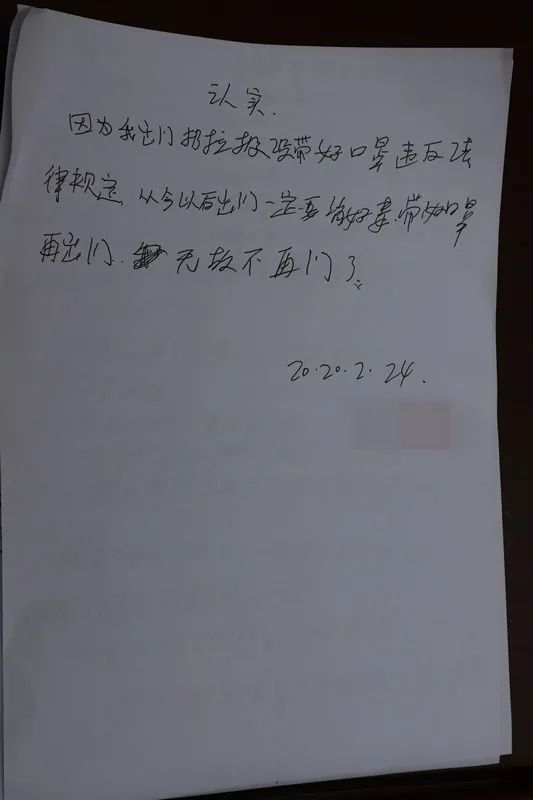 认实.
因为我出门扔垃圾没带好口罩违反法
律规定 从今以后出门一定要 好毒.带好口罩
再出门. 无故不再门了.
20.20.2.24.